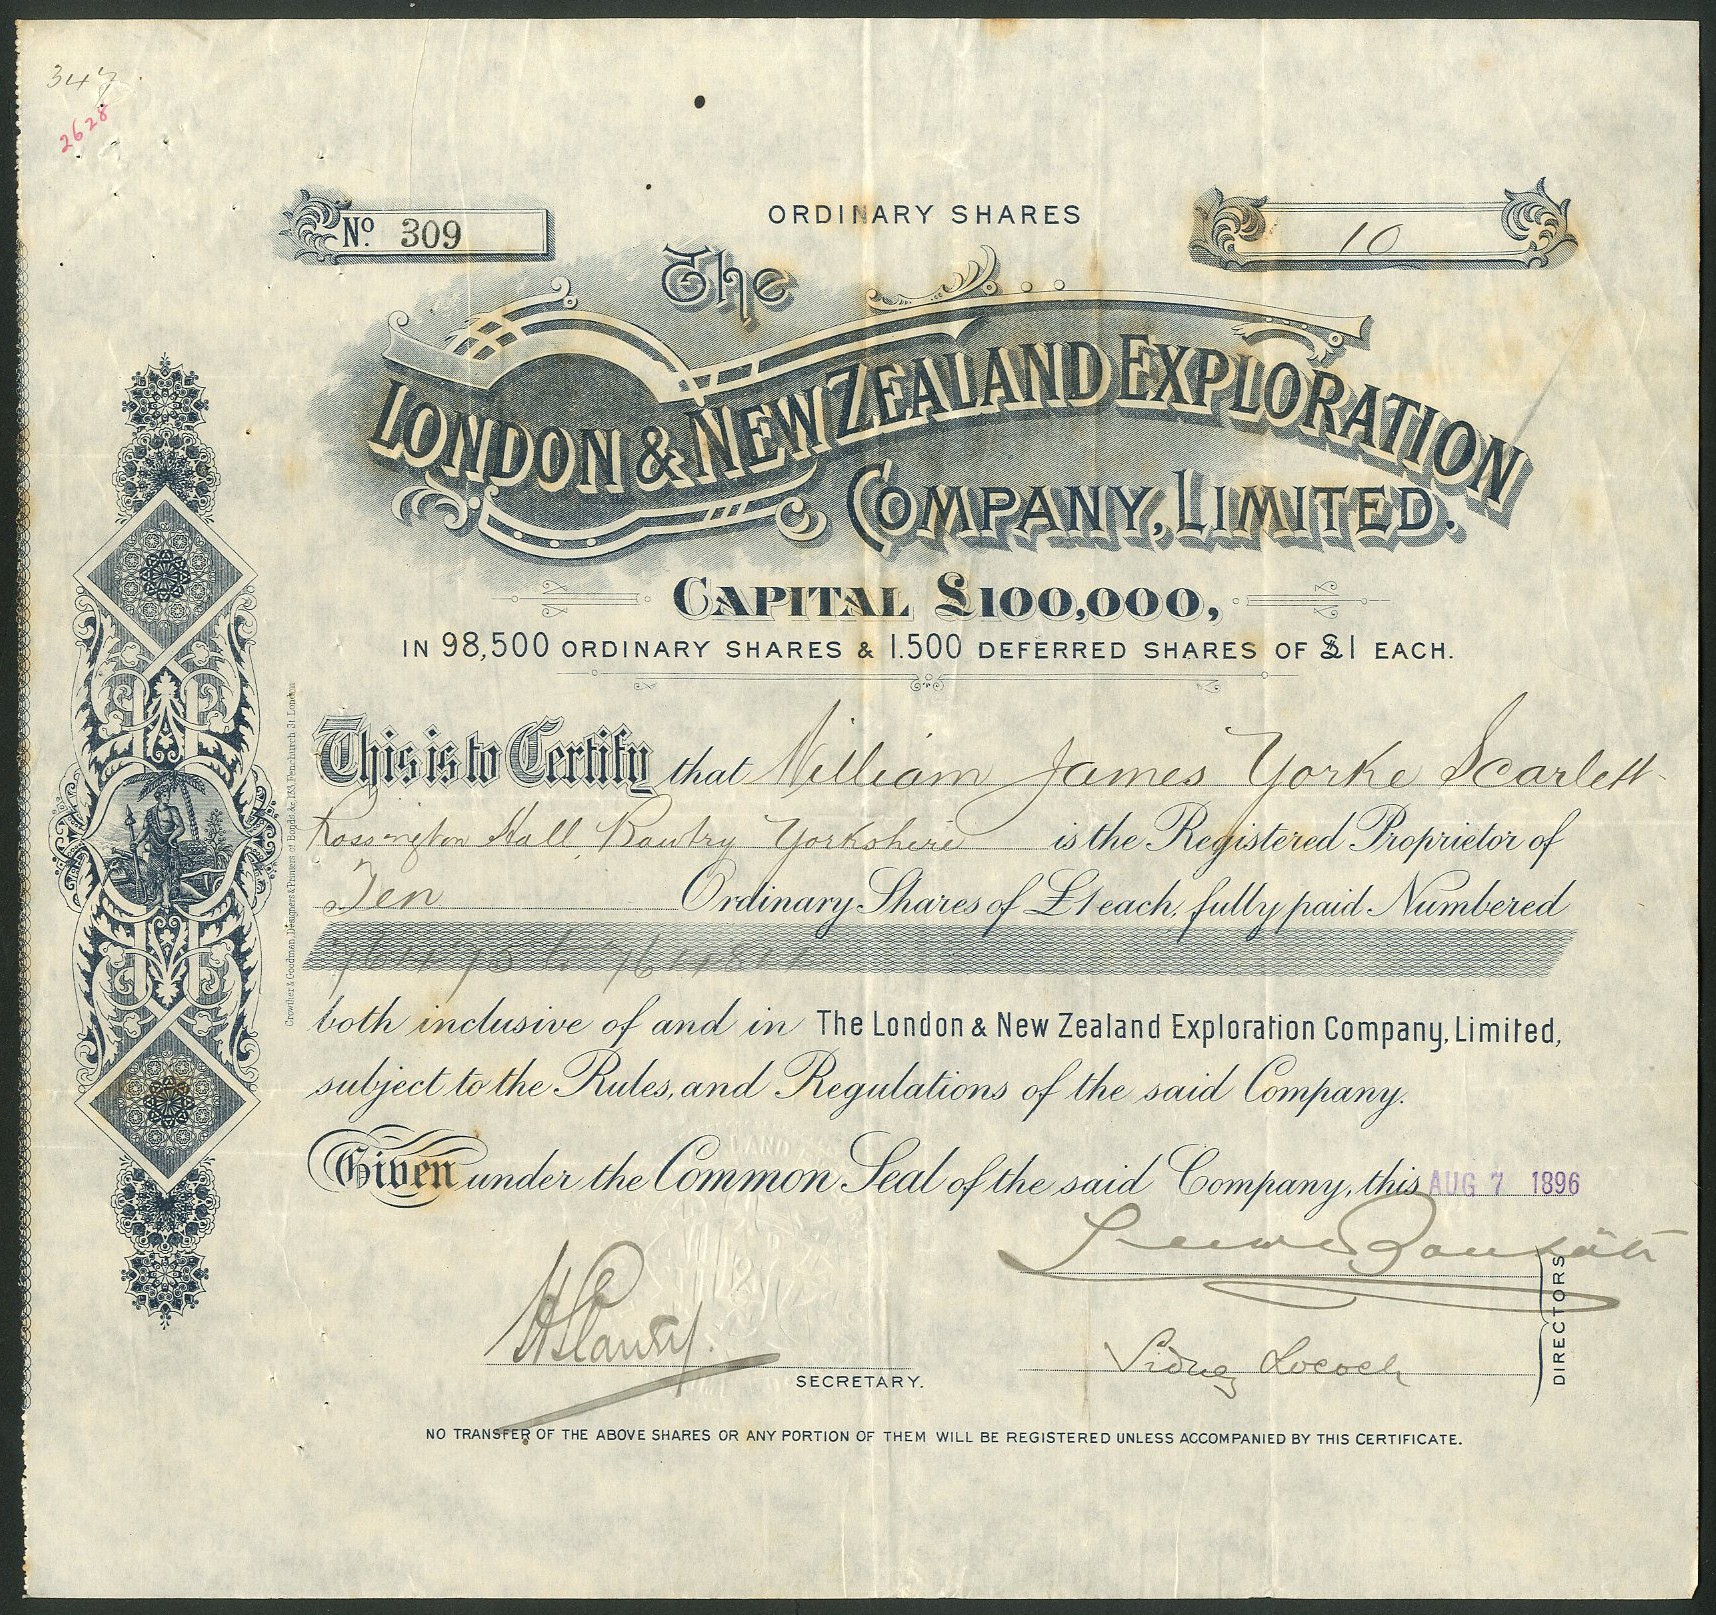 347
2628
ORDINARY SHARES
No. 309
10
The
LONDON & NEW ZEALAND EXPLORATION
COMPANY, LIMITED.
CAPITAL £100,000,
IN 98,500 ORDINARY SHARES & 1.500 DEFERRED SHARES OF £1 EACH.
This is to Certify that William James Yorke Scarlett
Rossington Hall, Bawtry Yorkshire is the Registered Proprietor of
Ten Ordinary Shares of £1 each, fully paid Numbered
both inclusive of and in The London & New Zealand Exploration Company, Limited,
subject to the Rules, and Regulations of the said Company.
Given under the Common Seal of the said Company, this AUG 7 1896
Sidney Locock
DIRECTORS
SECRETARY.
NO TRANSFER OF THE ABOVE SHARES OR ANY PORTION OF THEM WILL BE REGISTERED UNLESS ACCOMPANIED BY THIS CERTIFICATE.
Crowther & Goodman, Designers & Printers of Bonds &c, 123, Fenchurch St. London